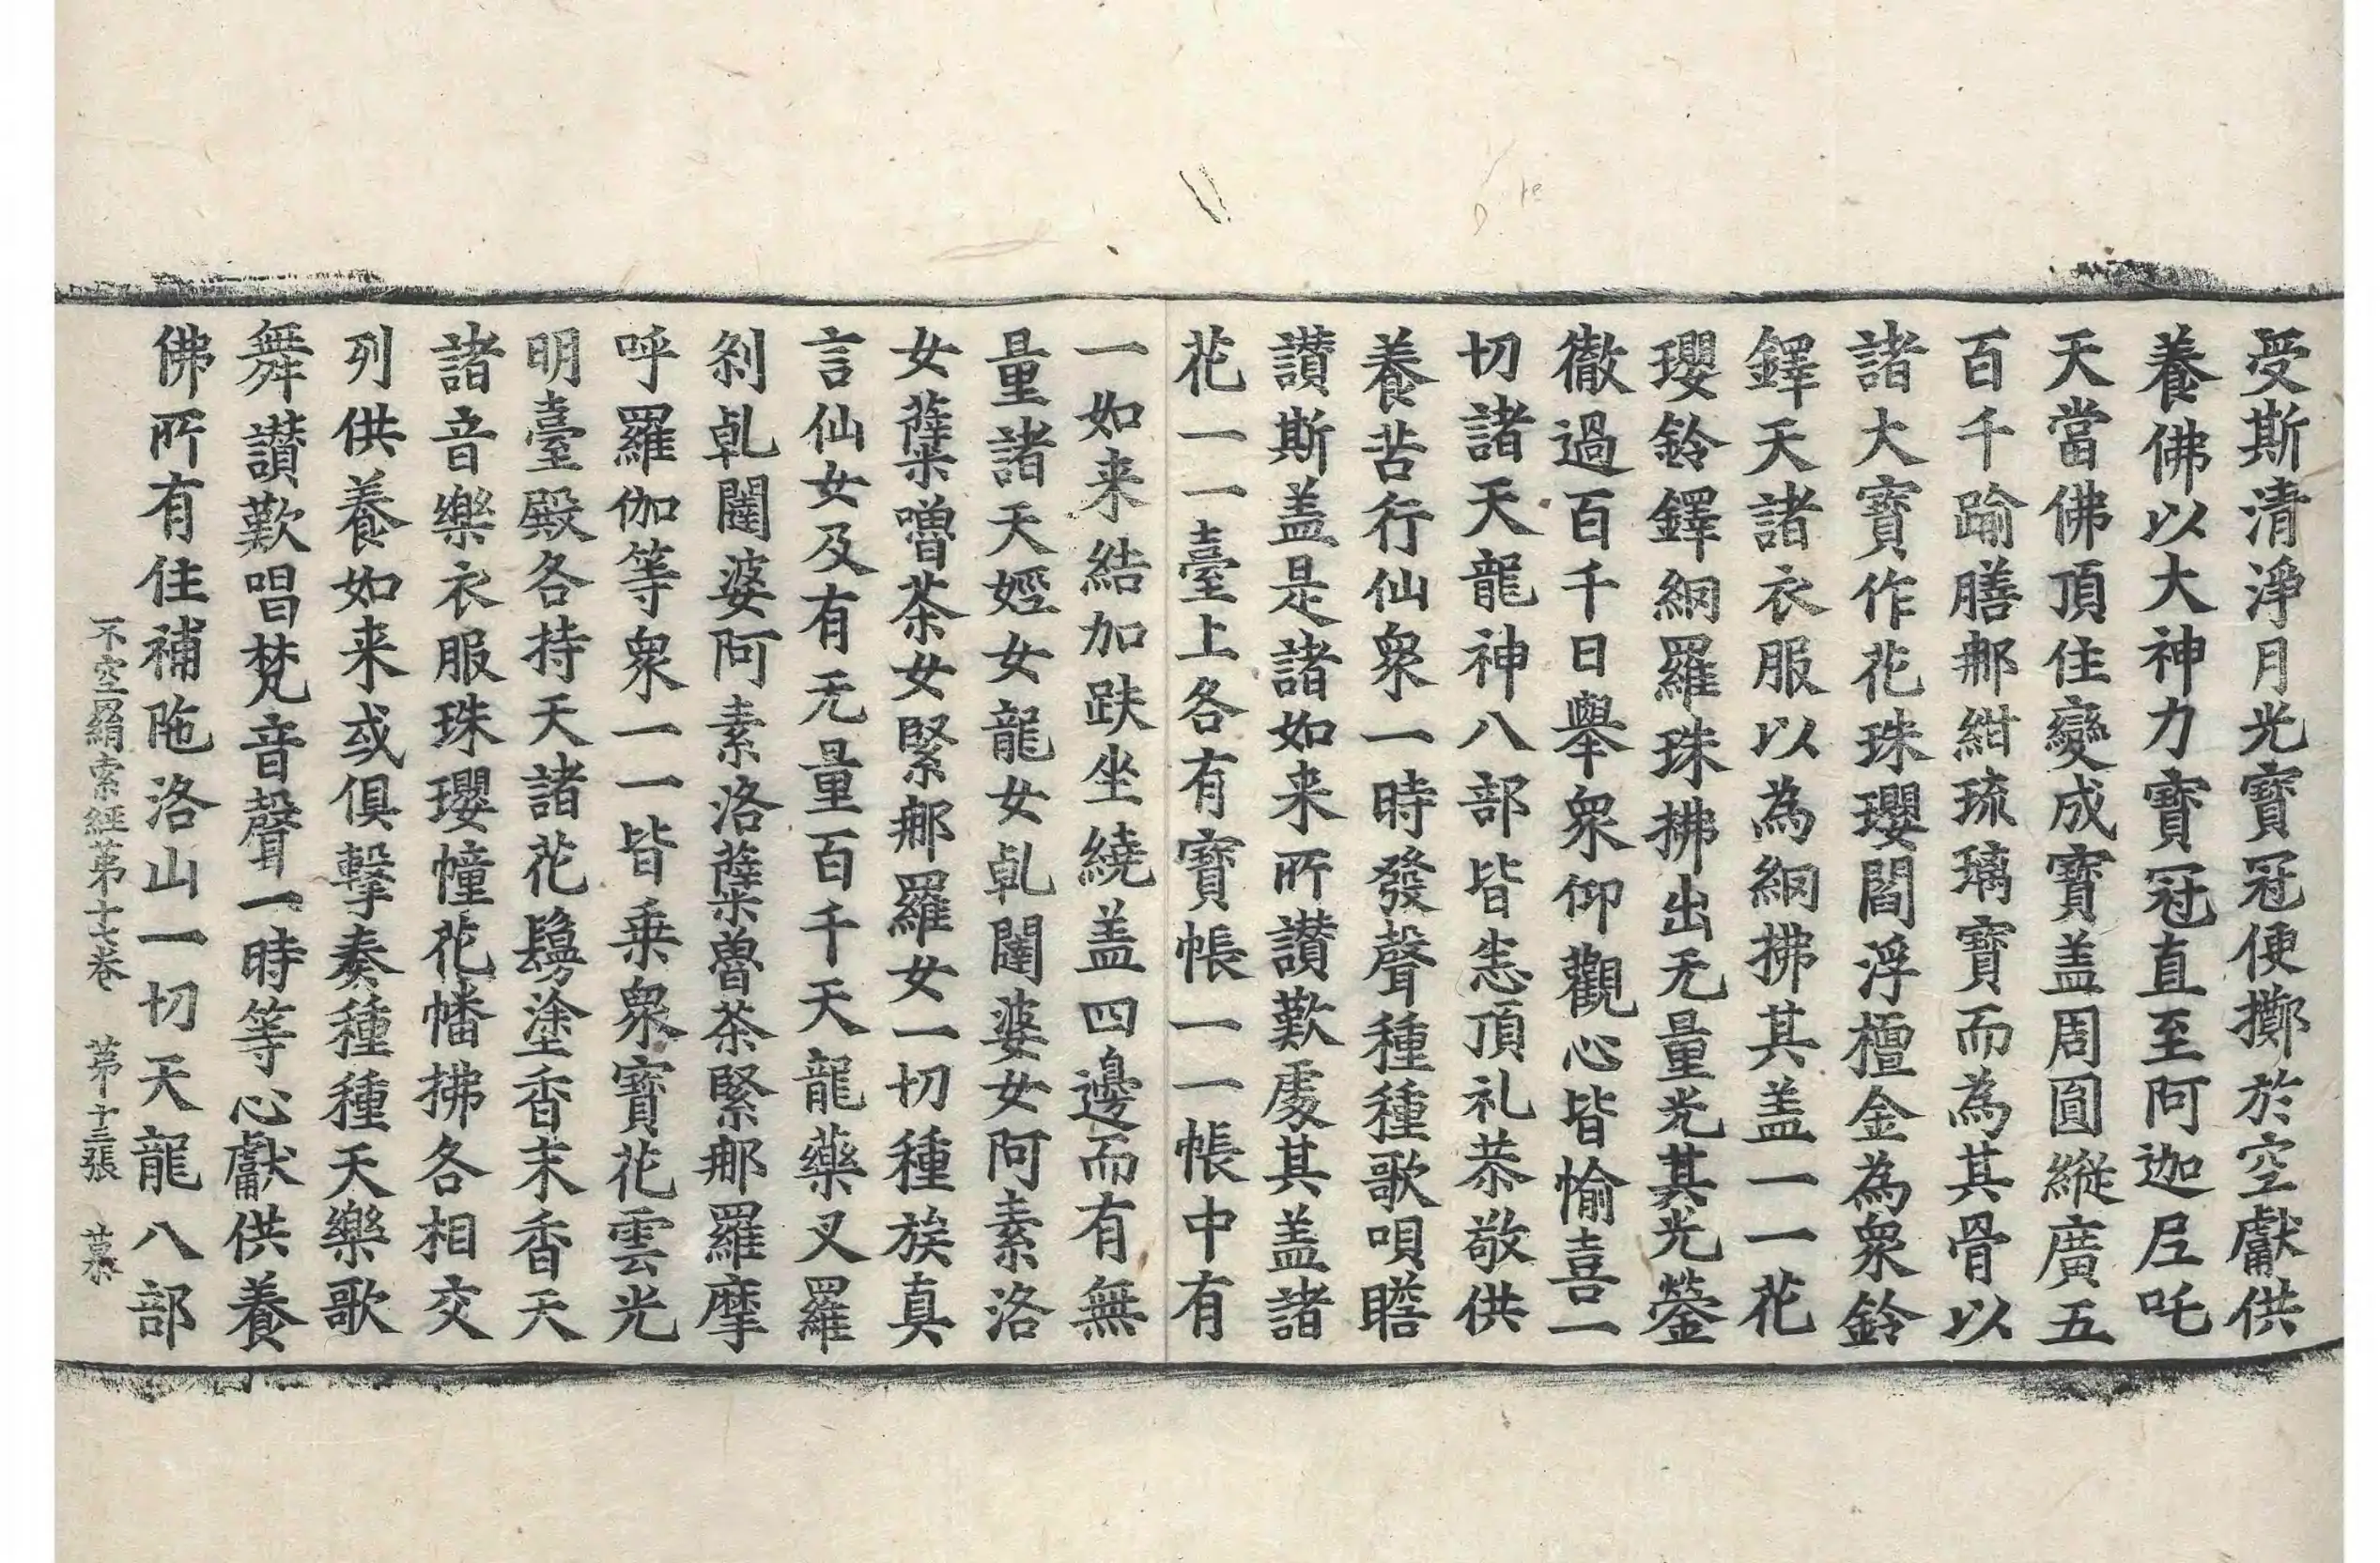 受斯清淨月光寶冠便擲於空獻供
養佛以大神力寶冠直至阿迦尼吒
天當佛頂住變成寶盖周圓縱廣五
百千踰膳那紺琉璃寶而為其骨以
諸大寶作花珠瓔閻浮檀金為衆鈴
鐸天諸衣服以為綱拂其盖一一花
瓔鈴鐸綱羅珠拂出无量光其光瑩
徹過百千日舉衆仰觀心皆愉喜一
切諸天龍神八部皆悉頂礼恭敬供
養苦行仙衆一時發聲種種歌唄瞻
讃斯盖是諸如来所讃歎處其盖諸
花一一臺上各有寶帳一一帳中有
一如来結加趺坐繞盖四邊而有無
量諸天婬女龍女乹闥婆女阿素洛
女蘖嚕茶女緊那羅女一切種族真
言仙女及有无量百千天龍藥叉羅
剎乹闥婆阿素洛蘖魯茶緊那羅摩
呼羅伽等衆一一皆乗衆寶花雲光
明臺殿各持天諸花鬘塗香末香天
諸音樂衣服珠瓔幢花幡拂各相交
列供養如来或俱擊奏種種天樂歌
舞讃歎唱梵音聲一時等心獻供養
佛所有住補陁洛山一切天龍八部
不空羂索經第十七卷 第十三張 慕